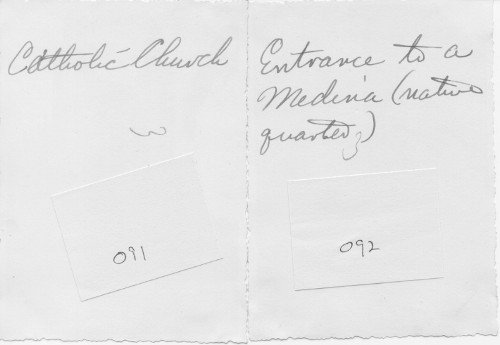 Catholic Church
091
Entrance to a
Medina (native
quarter)
092